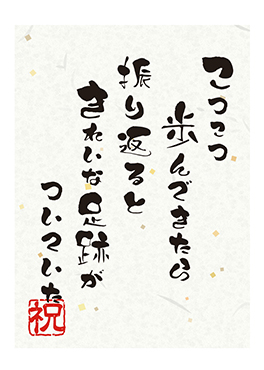 こつこつ
歩んできたら
振り返ると
きれいな足跡が
ついていた
祝